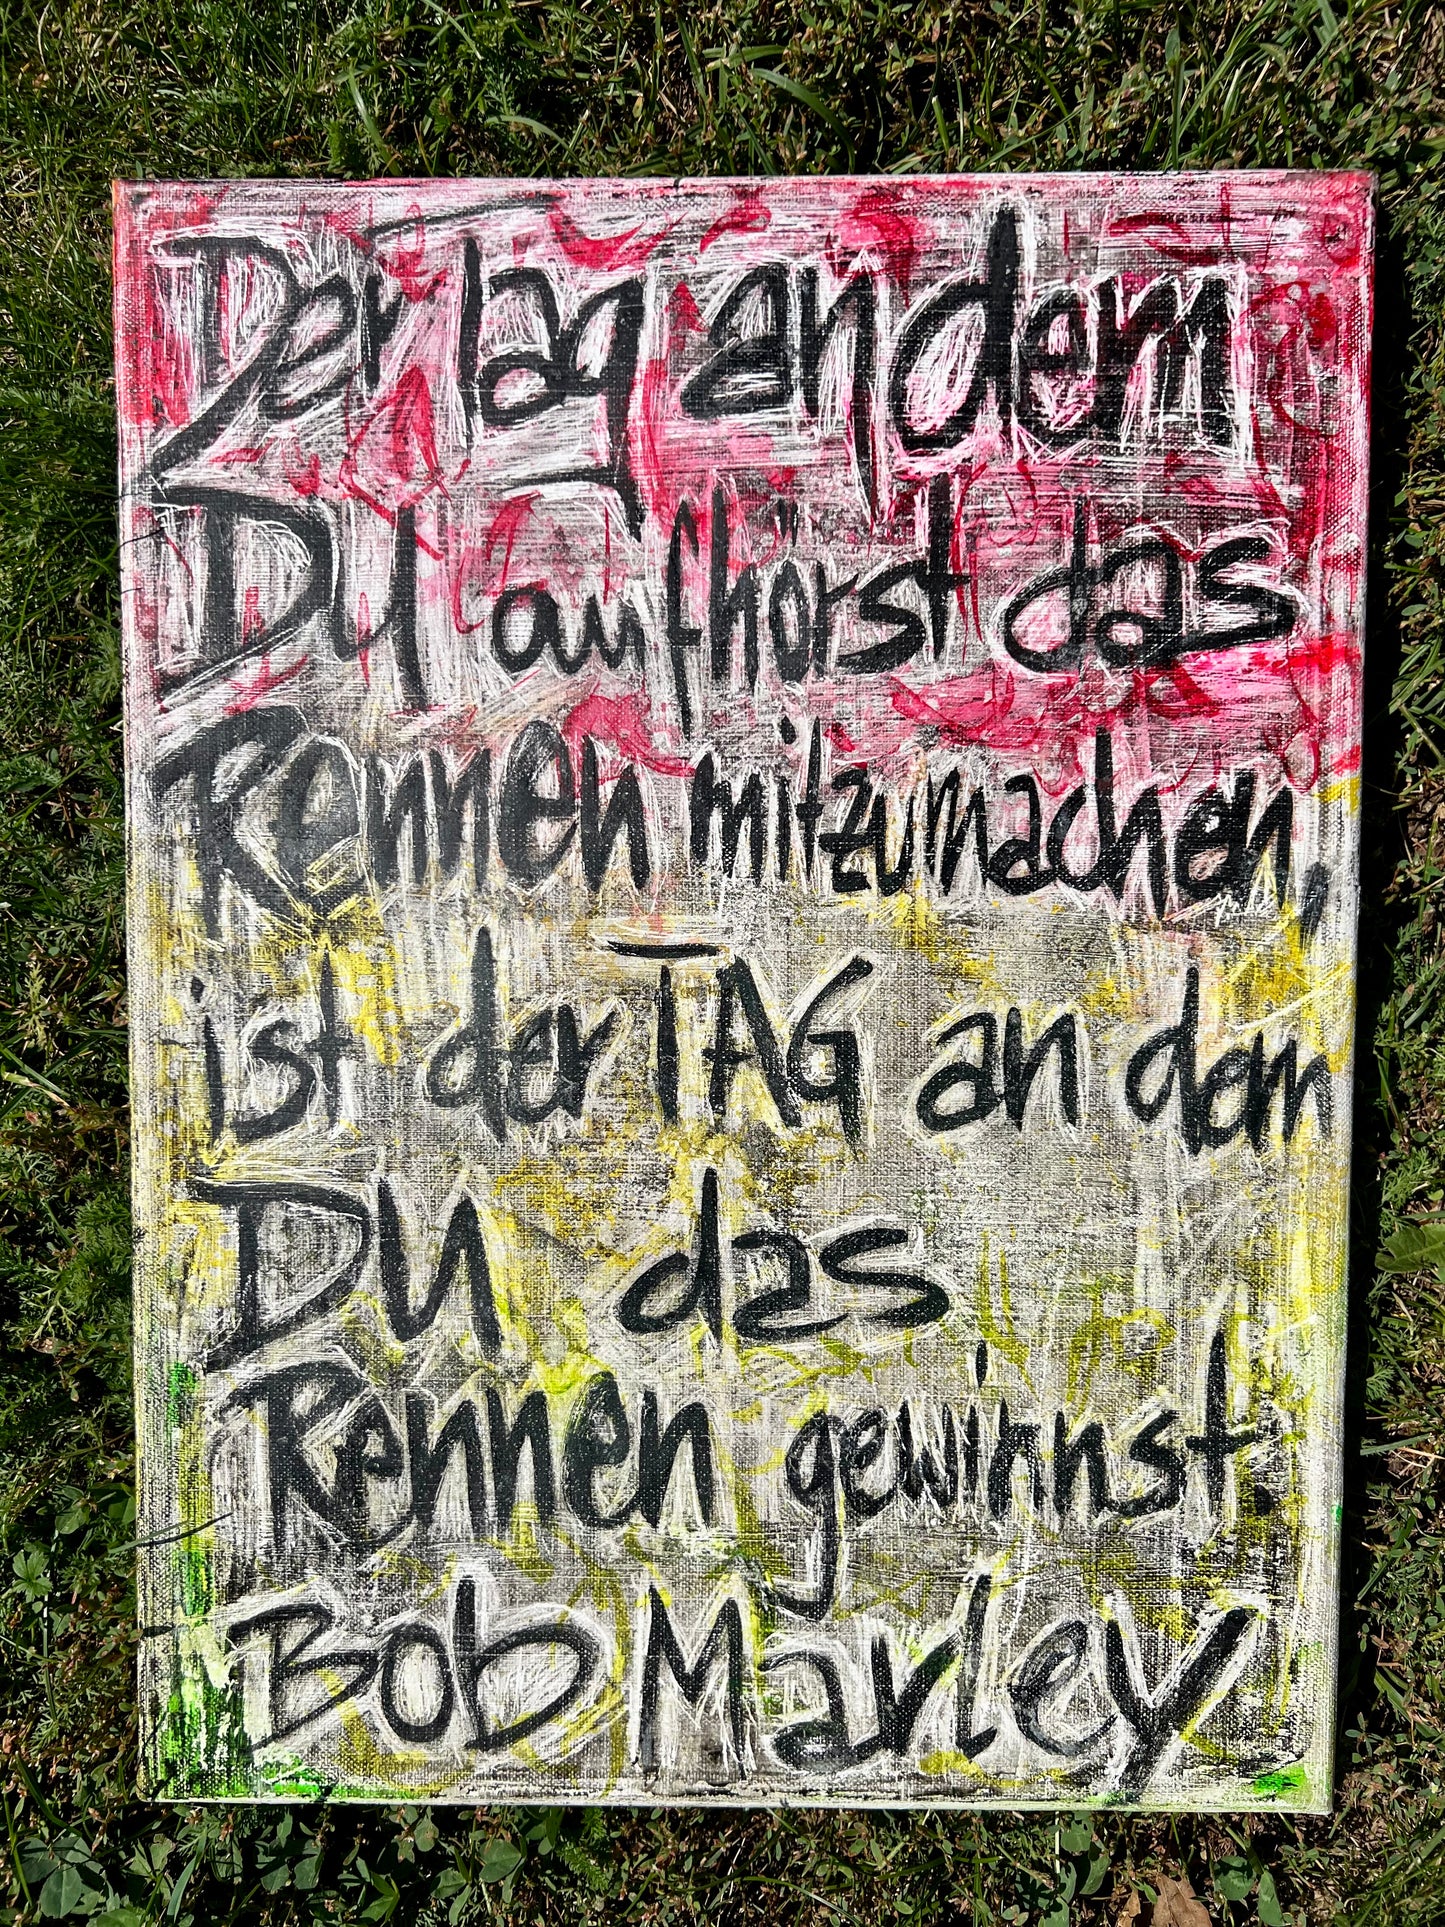 Der Tag an dem
Du aufhörst das
Rennen mitzumachen,
ist der TAG an dem
Du das
Rennen gewinnst.
Bob Marley